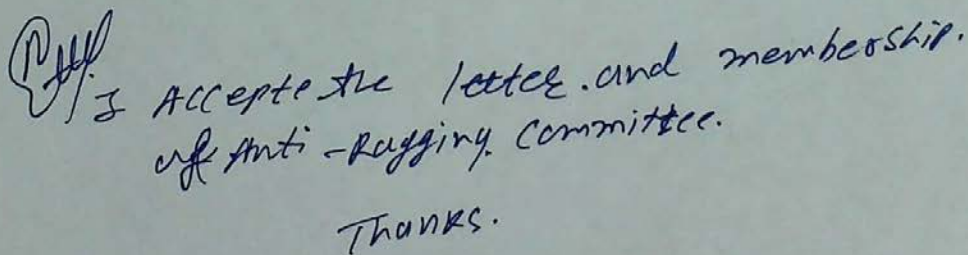 I Accepte the letter. and membership.
of Anti-Ragging. Committee.
Thanks.